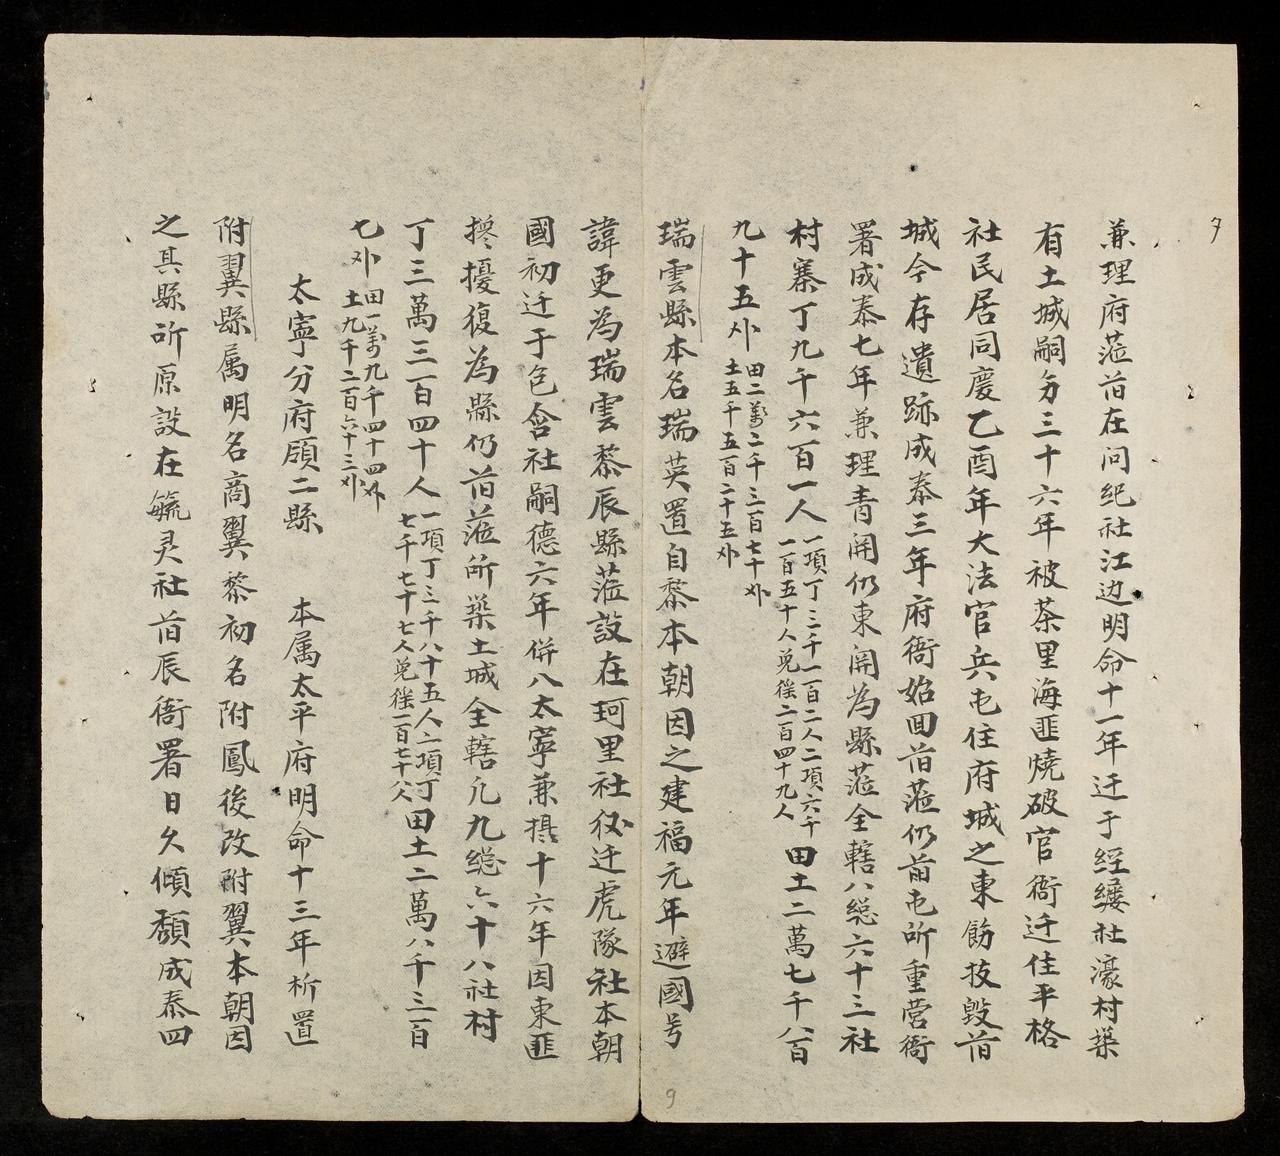 兼理府蒞前在问絽社江边明命十一年迁于經纓社濠村築
有土城嗣𠔭三十六年被茶里海匪燒破官衙迁住平格
社民居同慶乙酉年大法官兵屯住府城之東飭技毁前
城今存遺跡成泰三年府衙始回前蒞仍前屯所重营衙
署成泰七年兼理青関仍東関為縣蒞全轄八総六十三社
村寨丁九千六百一人一項丁三千一百二人二項六千一百五十人兑徭二百四十九人田土二萬七千八百
九十五𠦳田二萬二千三百七十𠦳土五千五百二十五𠦳
瑞雲縣本名瑞英置自黎本朝因之建福元年避國号
諱更為瑞雲黎辰縣蒞設在珂里社後迁虎隊社本朝
國初迁于色含社嗣德六年併入太寧兼摂十六年因東匪
攪擾復為縣仍前蒞所築土城全轄九総六十八社村
丁三萬三百四十人一項丁三千八十五人二項丁七千七十七人兑徭一百七十八人田土二萬八千三百
七𠦳田一萬九千四十四𠦳土九千二百六十三𠦳
太寧分府領二縣 本属太平府明命十三年析置
附翼縣属明名商翼黎初名附鳳後改附翼本朝因
之其縣所原設在毓灵社前辰衙署日久傾頹成泰四
9